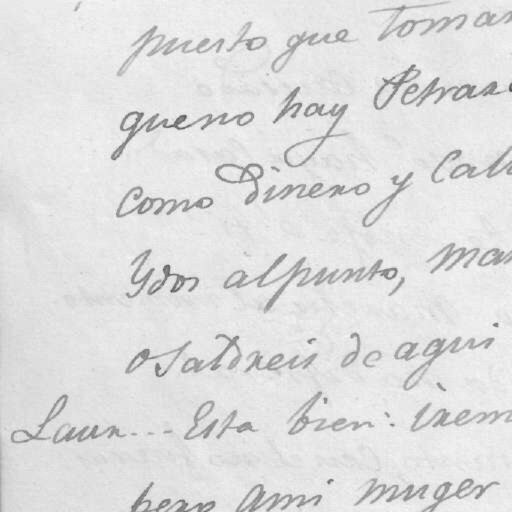 puesto que tomar
que no hay Petrar
como dinero y Cab
Ydos alpunto, mar
o saldreis de aqui
Laur... Esta bien: irem
pero ami muger